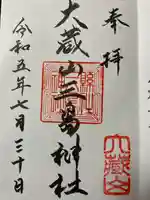 奉拝
大蔵山三島神社
令和五年七月三十日